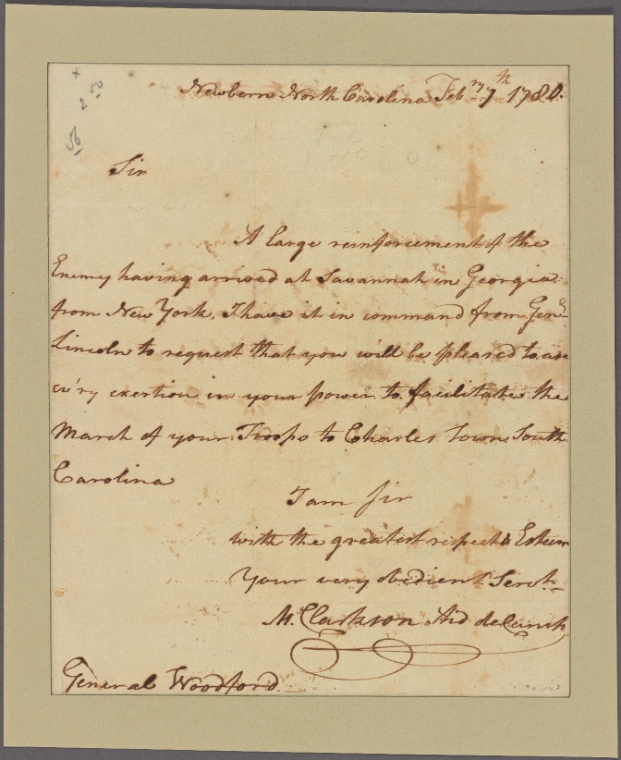 +
2 50
56
Newbern North Carolina Febry. 7th 1780.
Sir
A large reinforcement of the
Enemy having arrived at Savannah in Georgia
from New York, I have it in command from Genl.
Lincoln to request that you will be pleased to use
ev'ry exertion in your power to facilitate the
March of your Troops to Charles Town South
Carolina
I am Sir
with the greatest respect & Esteem
Your very obedient Servt.
M. Clarkson Aid de Camp
General Woodford